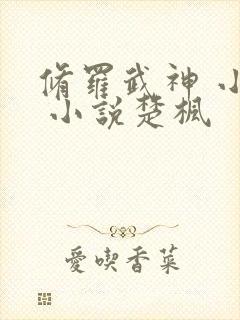 脩羅武神 小
小說楚楓
愛喫香菜